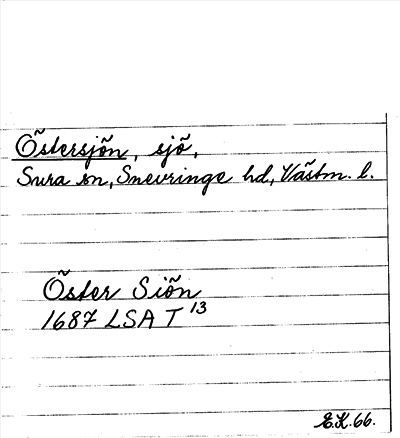 Östersjön, sjö,
Sura sn, Snevringe hd, Västm. l.
Öster Siön
1687 LSA T 13
E.K. 66.